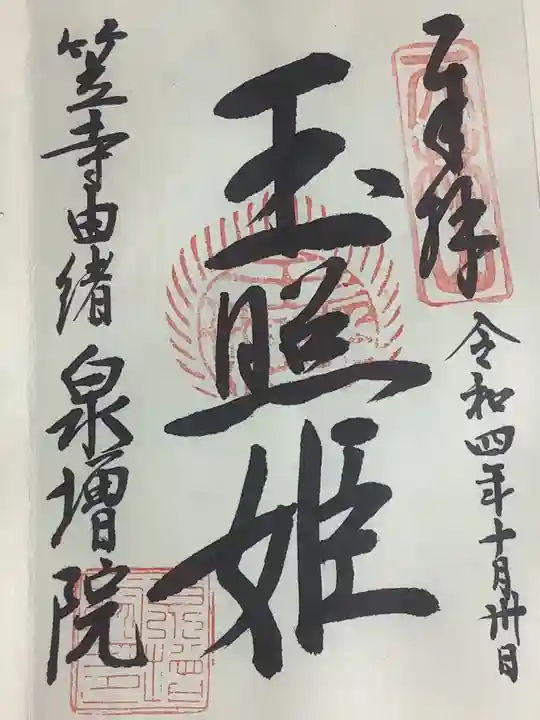 奉拝
令和四年十月卅日
玉照姫
笠寺由緒 泉増院